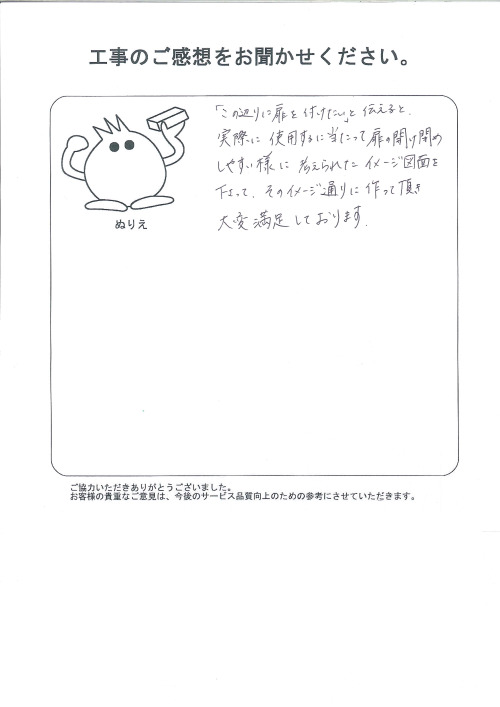 工事のご感想をお聞かせください。
「この辺りに扉を付けたい」と伝えると、
実際に使用するに当たって扉の開け閉め
しやすい様に考えられたイメージ図面を
下さって、そのイメージ通りに作って頂き
大変満足しております。
ぬりえ
ご協力いただきありがとうございました。
お客様の貴重なご意見は、今後のサービス品質向上のための参考にさせていただきます。